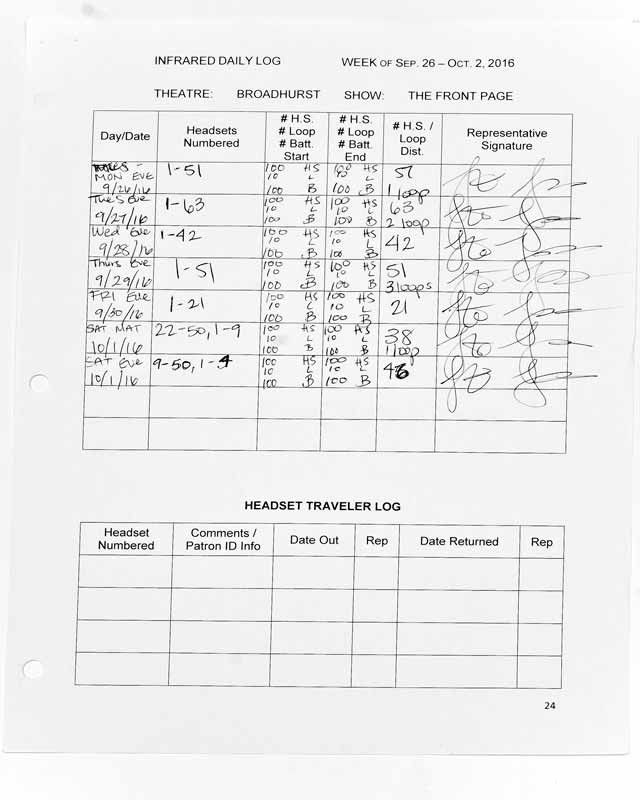 INFRARED DAILY LOG WEEK OF SEP. 26 – OCT. 2, 2016
THEATRE: BROADHURST SHOW: THE FRONT PAGE
Day/Date Headsets Numbered # H.S. # Loop # Batt. Start # H.S. # Loop # Batt. End # H.S. / Loop Dist. Representative Signature
MON EVE 9/26/16 1-51 100 HS 10 L 100 B 100 HS 10 L 100 B 51 1 loop
Tues Eve 9/27/16 1-63 100 HS 10 L 100 B 100 HS 10 L 100 B 63 2 loop
Wed Eve 9/28/16 1-42 100 HS 10 L 100 B 100 HS 10 L 100 B 42
Thurs Eve 9/29/16 1-51 100 HS 10 L 100 B 100 HS 10 L 100 B 51 3 loops
FRI Eve 9/30/16 1-21 100 HS 10 L 100 B 100 HS 10 L 100 B 21
SAT MAT 10/1/16 22-50, 1-9 100 HS 10 L 100 B 100 HS 10 L 100 B 38 1 loop
SAT Eve 10/1/16 9-50, 1-4 100 HS 10 L 100 B 100 HS 10 L 100 B 46
HEADSET TRAVELER LOG
Headset Numbered Comments / Patron ID Info Date Out Rep Date Returned Rep
24